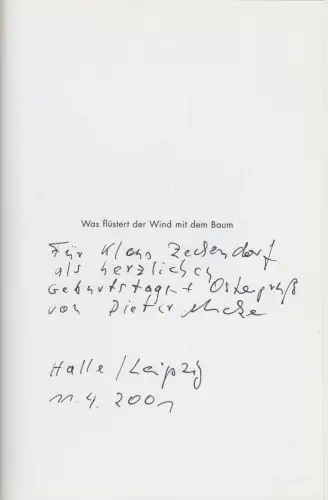 Was flüstert der Wind mit dem Baum
Für Klaus Zeckendorf
als herzlichen
Geburtstags+Ostergruß
von Dieter Mucke
Halle/Leipzig
11.4.2001